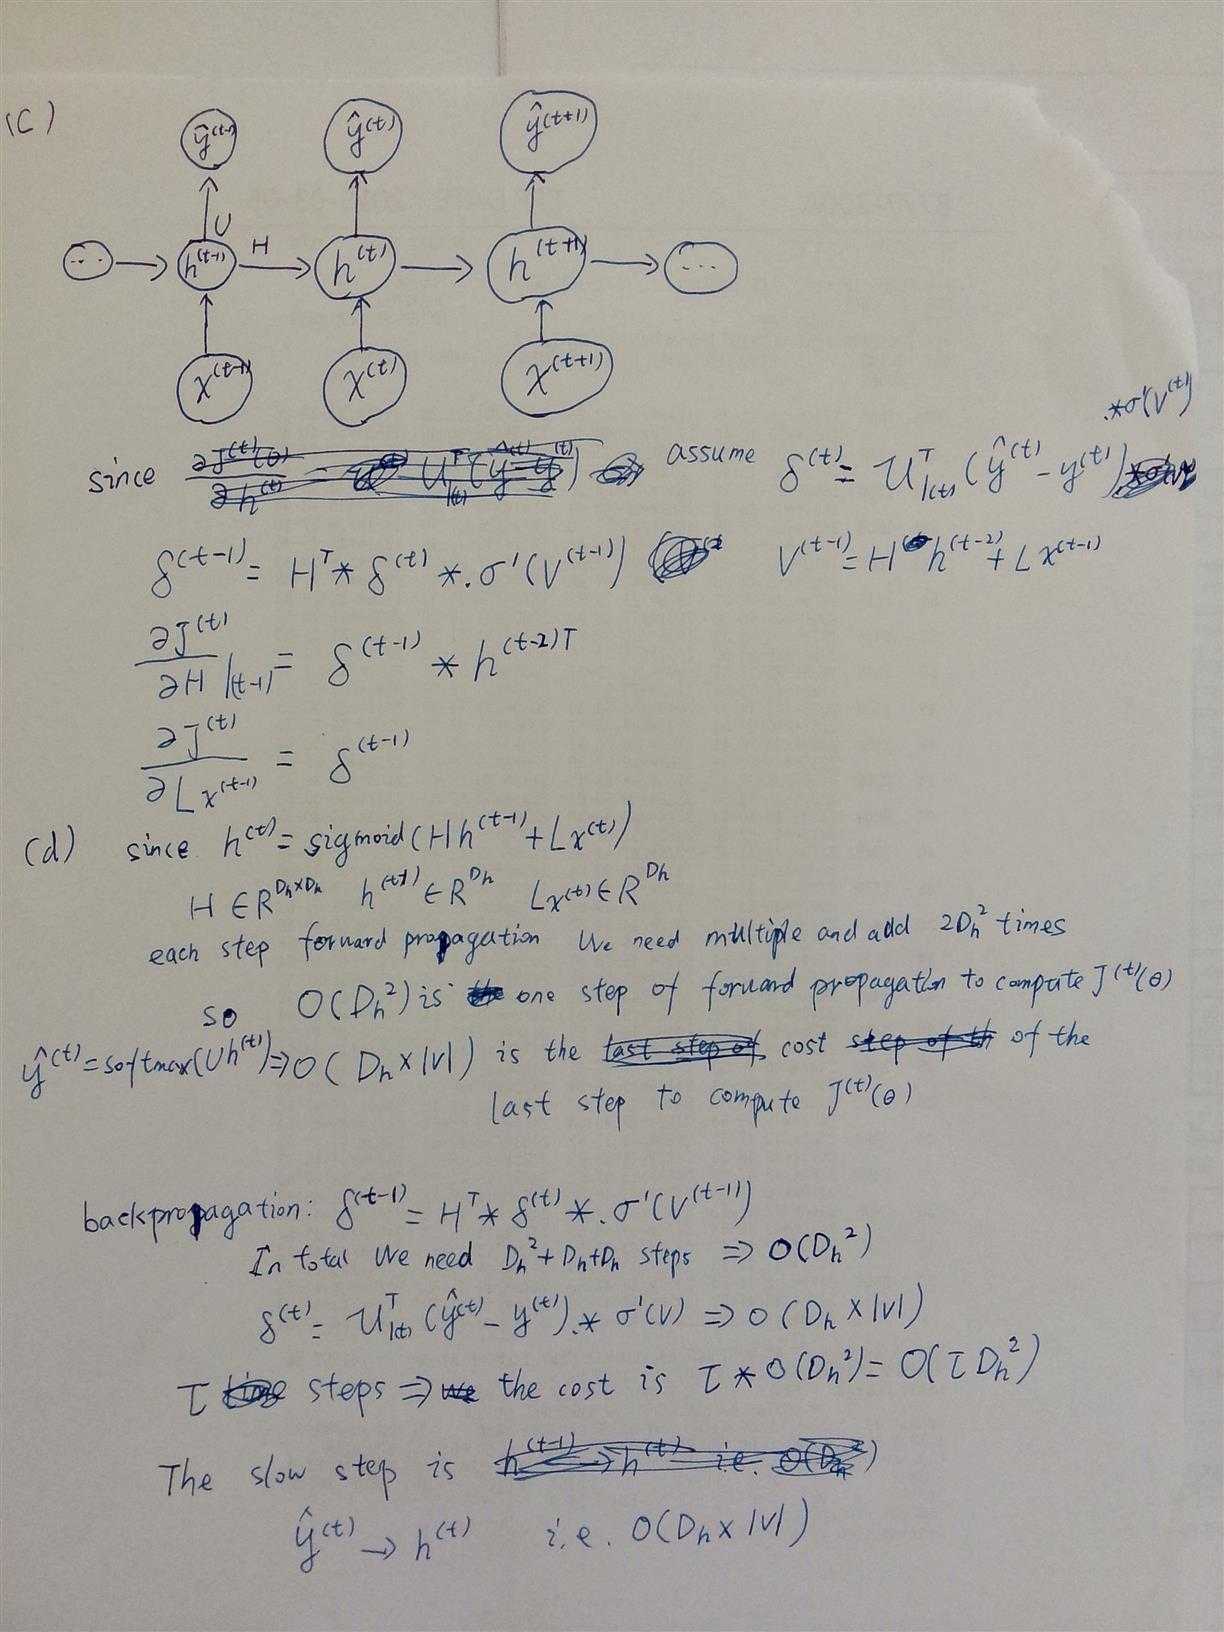 (C)
ŷ^(t-1) ŷ^(t) ŷ^(t+1)
U
... h^(t-1) H h^(t) h^(t+1) ...
x^(t-1) x^(t) x^(t+1)
.*σ'(V^(t))
since assume δ^(t) = U^T|(t) (ŷ^(t) - y^(t))
δ^(t-1) = H^T * δ^(t) *. σ'(V^(t-1)) V^(t-1) = H h^(t-2) + Lx^(t-1)
∂J^(t)/∂H |(t-1) = δ^(t-1) * h^(t-2)T
∂J^(t)/∂Lx^(t-1) = δ^(t-1)
(d) since h^(t) = sigmoid(Hh^(t-1) + Lx^(t))
H ∈ R^Dh×Dh h^(t-1) ∈ R^Dh Lx^(t) ∈ R^Dh
each step forward propagation We need multiple and add 2Dh^2 times
so O(Dh^2) is one step of forward propagation to compute J^(t)(θ)
ŷ^(t) = softmax(Uh^(t)) ⇒ O(Dh×|V|) is the cost of the
last step to compute J^(t)(θ)
backpropagation: δ^(t-1) = H^T * δ^(t) *. σ'(V^(t-1))
In total We need Dh^2 + Dh + Dh steps ⇒ O(Dh^2)
δ^(t) = U^T|(t) (ŷ^(t) - y^(t)) .* σ'(V) ⇒ O(Dh×|V|)
τ steps ⇒ the cost is τ * O(Dh^2) = O(τDh^2)
The slow step is
ŷ^(t) → h^(t) i.e. O(Dh×|V|)